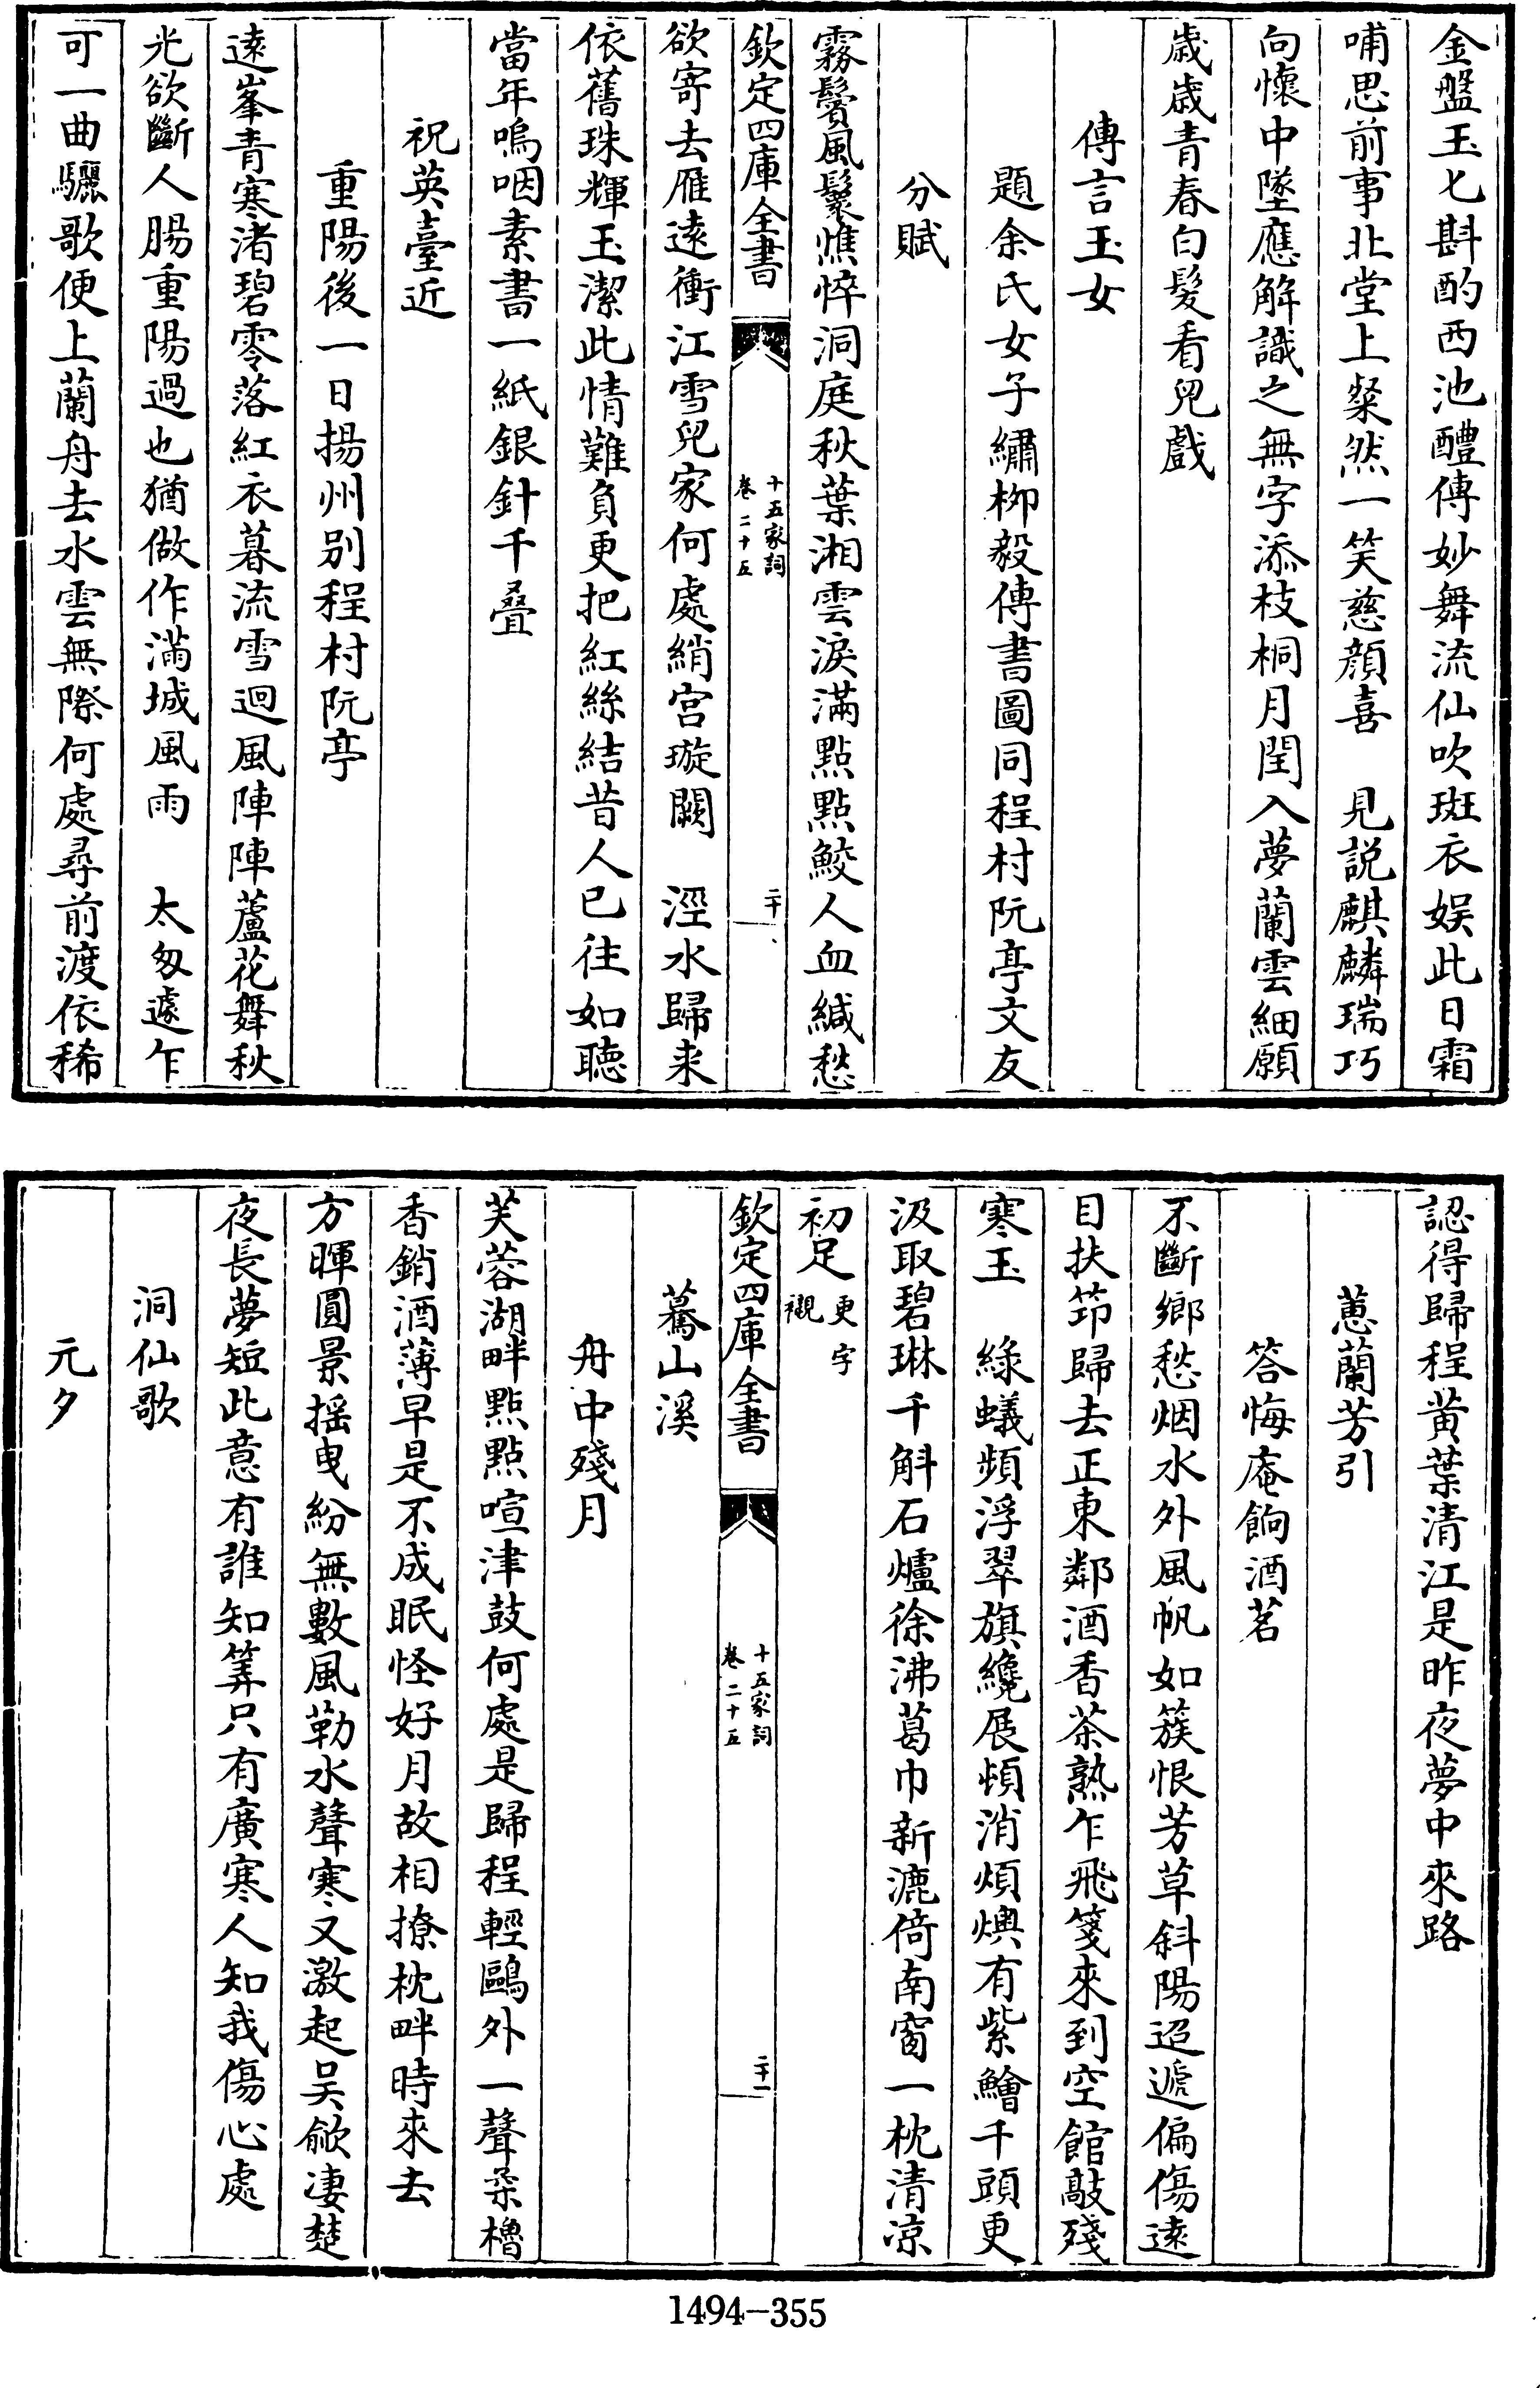 金盤玉七斟酌西池醴傳妙舞流仙吹斑衣娱此日霜
哺思前事北堂上粲然一笑慈顔喜　見説麒麟瑞巧
向懷中墜應解識之無字添枝桐月閏入夢蘭雲細願
歳歳青春白髪看兒戲
傳言玉女
題余氏女子繡栁毅傳書圖同程村阮亭文友
分賦
霧鬢風鬟憔悴洞庭秋葉湘雲淚滿點點鮫人血緘愁
欽定四庫全書
十五家詞
卷二十五
二十
欲寄去雁逺衝江雪兒家何處綃宫璇闕　涇水歸来
依舊珠輝玉潔此情難負更把紅絲結昔人已往如聴
當年嗚咽素書一紙銀針千疊
祝英臺近
重陽後一日揚州别程村阮亭
逺峯青寒渚碧零落紅衣暮流雪迴風陣陣蘆花舞秋
光欲斷人腸重陽過也猶做作滿城風雨　太匆遽乍
可一曲驪歌便上蘭舟去水雲無際何處尋前渡依稀
認得歸程黄葉清江是昨夜夢中來路
蕙蘭芳引
答悔庵餉酒茗
不斷鄉愁烟水外風帆如簇恨芳草斜陽迢遞偏傷逺
目扶笻歸去正東鄰酒香茶熟乍飛箋來到空館敲殘
寒玉　緑蟻頻浮翠旗纔展頓消煩燠有紫鱠千頭更
汲取碧琳千斛石爐徐沸葛巾新漉倚南窗一枕清凉
初足更字
襯
欽定四庫全書
十五家詞
卷二十五
二十一
驀山溪
舟中殘月
芙蓉湖畔點點喧津鼓何處是歸程輕鷗外一聲柔櫓
香銷酒薄早是不成眠怪好月故相撩枕畔時來去
方暉圓景摇曳紛無數風勒水聲寒又激起吴歈凄楚
夜長夢短此意有誰知筭只有廣寒人知我傷心處
洞仙歌
元夕
1494-355